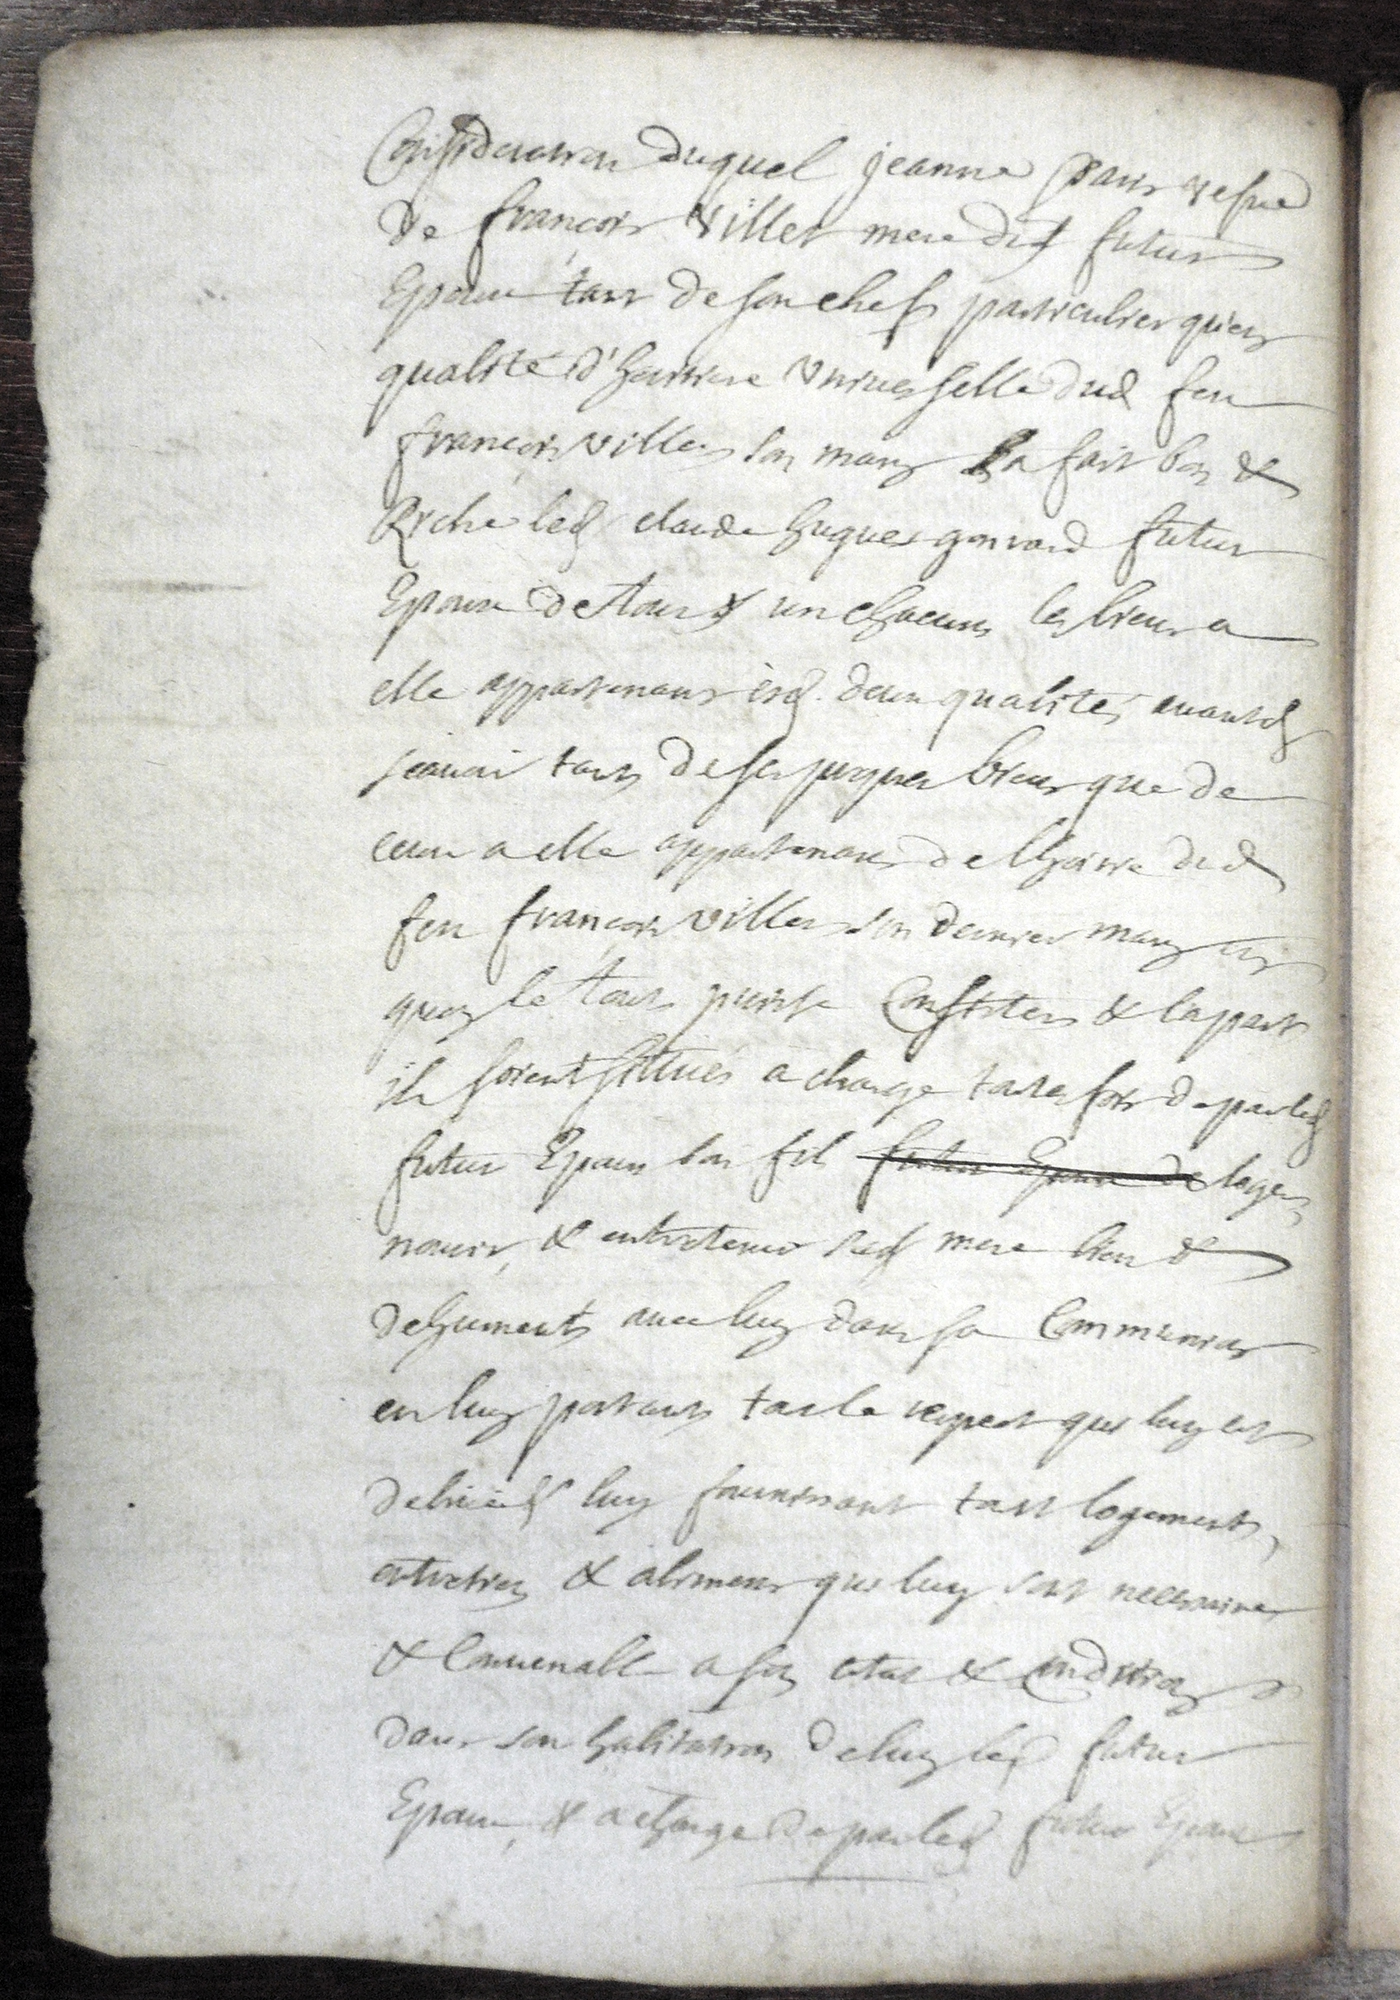 Consideration duquel jeanne paris vefue
de françois Villet mere dud futur
Epoux tant de son chefs particulier qu'en
qualité d'heritiere Vniuerselle dud feu
françois Villet son mary a fait bon &
Riche led claude hugues gonrard futur
Epoux de tous & un chacuns les biens a
elle appartenans esd. deux qualités
scauoir tant de ses propres biens que de
ceux a elle appartenans de lhoirie dud
feu françois Villet son dernier mary en
quoy le tout puisse Consister & la part
ils soient situés a charge toutes fois de par led
futur Epoux son fil futur Epoux de loger,
nourir, & entretenir lad mere bien &
dehument auec luy dans sa Communion
en luy portant tout le respect qui luy est
dehu & luy fournissant tout logement,
entretien & alimens qui luy sont necessaires
& Conuenable a son etat & Condition
dans son habitation de luy led futur
Epoux, & a charge de par led futur Epoux